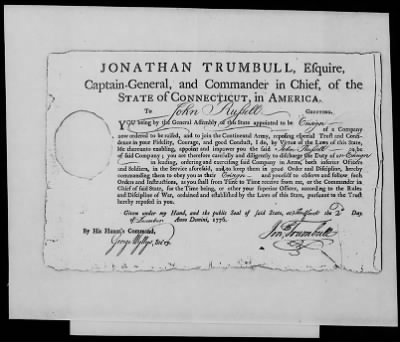 JONATHAN TRUMBULL, Esquire,
Captain-General, and Commander in Chief, of the
STATE OF CONNECTICUT, in AMERICA.
To John Russell GREETING.
YOU being by the General Assembly of this State appointed to be Ensign
of a Company
now ordered to be raised, and to join the Continental Army, reposing especial Trust and Confi-
dence in your Fidelity, Courage, and good Conduct, I do, by Virtue of the Laws of this State,
Me thereunto enabling, appoint and impower you the said John Russell to be
of said Company; you are therefore carefully and diligently to discharge the Duty of Ensign
in leading, ordering and exercising said Company in Arms, both inferior Officers
and Soldiers, in the Service aforesaid, and to keep them in good Order and Discipline, hereby
commanding them to obey you as their Ensign and yourself to observe and follow such
Orders and Instructions, as you shall from Time to Time receive from me, or the Commander in
Chief of said State, for the Time being, or other your superior Officers, according to the Rules
and Discipline of War, ordained and established by the Laws of this State, pursuant to the Trust
hereby reposed in you.
Given under my Hand, and the public Seal of said State, at Hartford the 2d Day
of December Anno Domini, 1776.
By His Honor's Command,
George Wyllys, Sec'ry.
Jon Trumbull